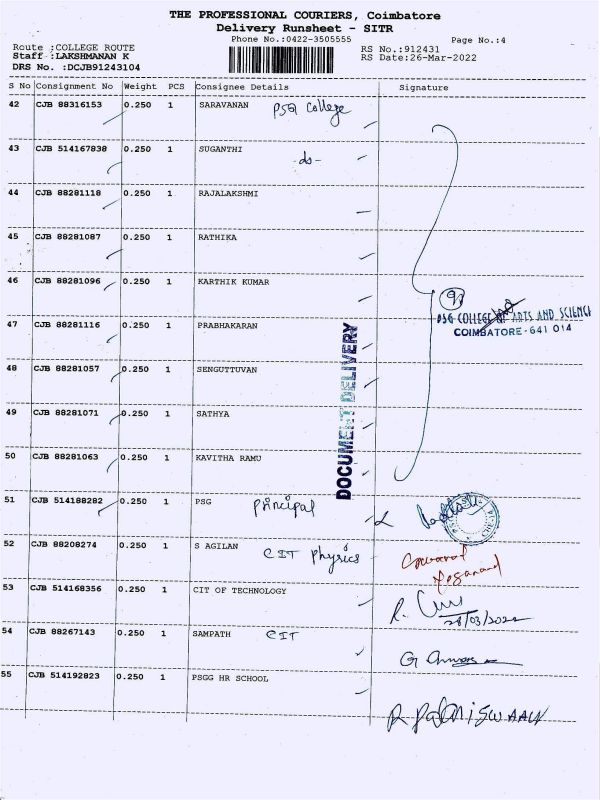 THE PROFESSIONAL COURIERS, Coimbatore
Delivery Runsheet - SITR
Phone No.:0422-3505555
Page No.:4
Route :COLLEGE ROUTE
RS No.:912431
Staff :LAKSHMANAN K
RS Date:26-Mar-2022
DRS No. :DCJB91243104
S No Consignment No Weight PCS Consignee Details Signature
42 CJB 88316153 0.250 1 SARAVANAN PSG College
43 CJB 514167838 0.250 1 SUGANTHI -do-
44 CJB 88281118 0.250 1 RAJALAKSHMI
45 CJB 88281087 0.250 1 RATHIKA
46 CJB 88281096 0.250 1 KARTHIK KUMAR
9
PSG COLLEGE OF ARTS AND SCIENCE
COIMBATORE - 641 014
47 CJB 88281116 0.250 1 PRABHAKARAN
DOCUMENT DELIVERY
48 CJB 88281057 0.250 1 SENGUTTUVAN
49 CJB 88281071 0.250 1 SATHYA
50 CJB 88281063 0.250 1 KAVITHA RAMU
51 CJB 514188282 0.250 1 PSG Principal
52 CJB 88208274 0.250 1 S AGILAN CIT Physics
53 CJB 514168356 0.250 1 CIT OF TECHNOLOGY
28/03/2022
54 CJB 88267143 0.250 1 SAMPATH CIT
55 CJB 514192823 0.250 1 PSGG HR SCHOOL